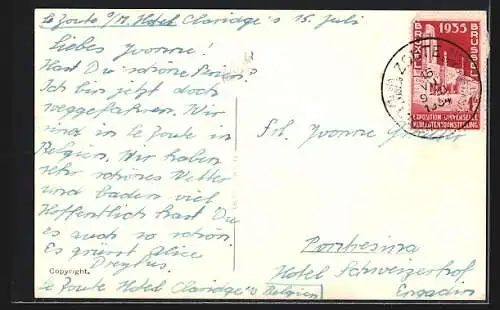 Le Zoute s/M. Hotel Claridge's 15. Juli
Liebes Yvonne!
Hast Du schöne Ferien?
Ich bin jetzt doch
weggefahren. Wir
sind in le Zoute in
Belgien. Wir haben
sehr schönes Wetter
und baden viel
Hoffentlich hast Du
es auch so schön.
Es grüsst Alice
Dreyfus
Copyright.
Le Zoute Hotel Claridge's Belgien
1935
BRUXELLES
BRUSSEL
ZOUTE
EXPOSITION UNIVERSELLE
WERELDTENTOONSTELLING
Frl. Yvonne
Pontresina
Hotel Schweizerhof
Engadin